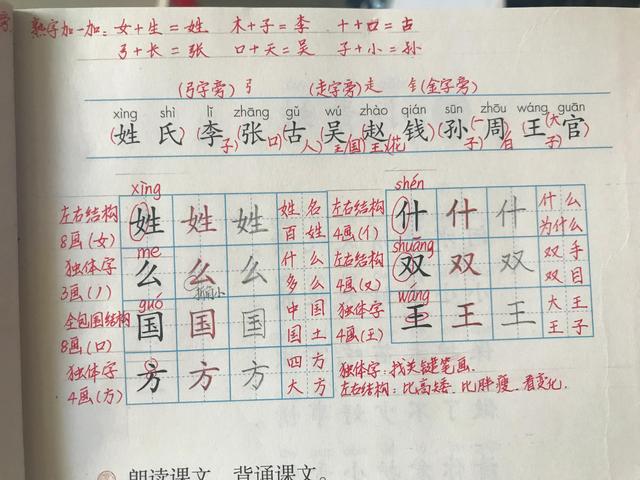 熟字加一加：女+生=姓 木+子=李 十+口=古
弓+长=张 口+天=吴 子+小=孙
(弓字旁) 弓 (走字旁)走 钅(金字旁)
xìng shì lǐ zhāng gǔ wú zhào qián sūn zhōu wáng guān
姓 氏 李 张 古 吴 赵 钱 孙 周 王 官
xìng shén
左右结构 姓 姓 姓 姓 名 左右结构 什 什 什 什 么
8画(女) 百 姓 4画(亻) 为什么
me shuāng
独体字 么 么 么 什 么 左右结构 双 双 双 双 手
3画(丿) 多 么 4画(又) 双 目
guó wáng
全包围结构 国 国 国 中 国 独体字 王 王 王 大 王
8画(口) 国 土 4画(王) 王 子
独体字 方 方 方 四 方 独体字：找关键笔画.
4画(方) 大 方 左右结构：比高矮.比胖瘦.看变化.
朗读课文。背诵课文。